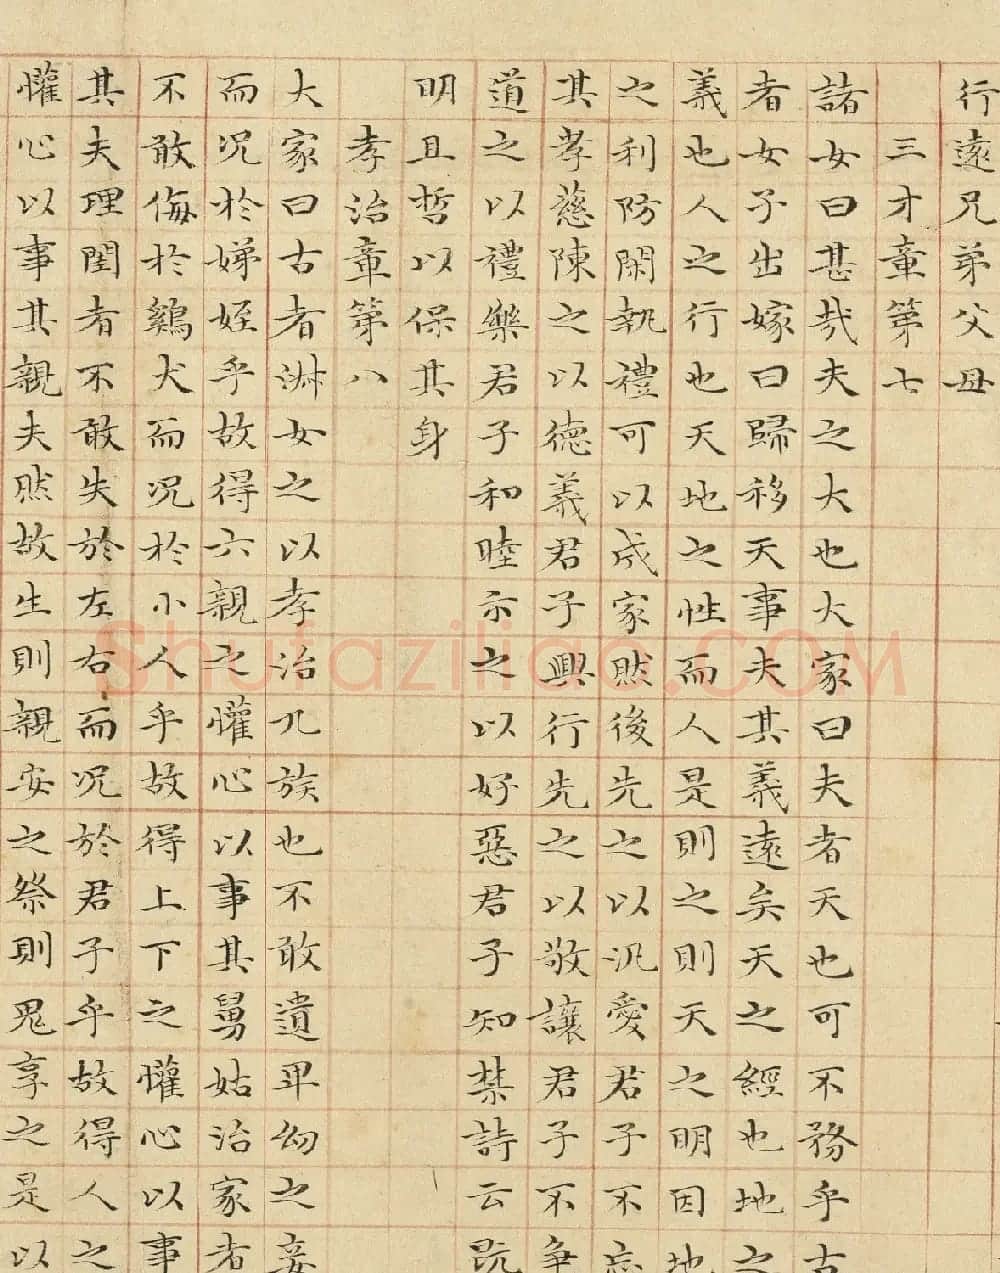 行遠兄弟父母
三才章第七
諸女曰甚哉夫之大也大家曰夫者天也可不務乎古
者女子出嫁曰歸移天事夫其義遠矣天之經也地之
義也人之行也天地之性而人是則之則天之明因地
之利防閑執禮可以成家然後先之以汎愛君子不忘
其孝慈陳之以德義君子興行先之以敬讓君子不爭
道之以禮樂君子和睦示之以好惡君子知禁詩云既
明且哲以保其身
孝治章第八
大家曰古者淑女之以孝治九族也不敢遺卑幼之妾
而况於娣姪乎故得六親之懽心以事其舅姑治家者
不敢侮於鷄犬而况於小人乎故得上下之懽心以事
其夫理閨者不敢失於左右而况於君子乎故得人之
懽心以事其親夫然故生則親安之祭則鬼享之是以
Shufaziliao.COM